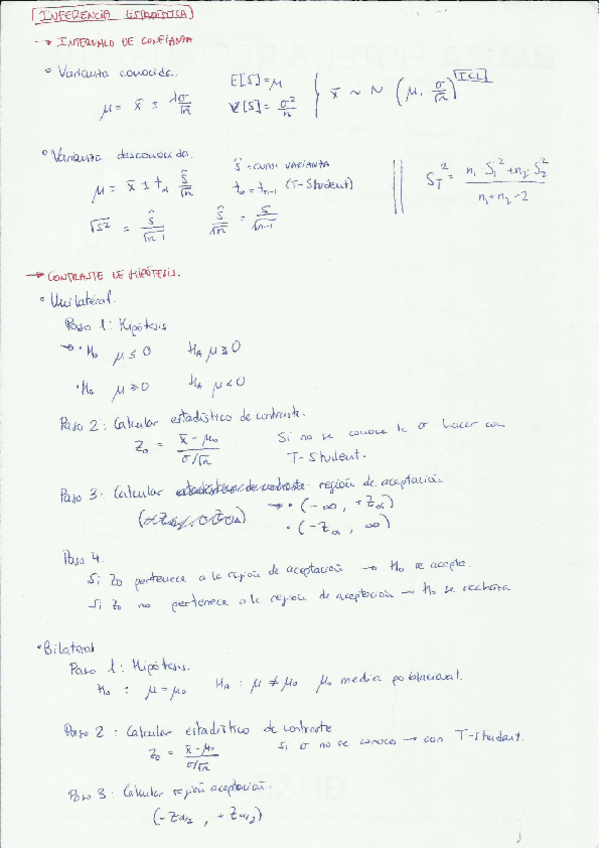 INFERENCIA ESTADÍSTICA
→ INTERVALO DE CONFIANZA
• Varianza conocida.
μ = x̄ ± λσ/√n
E[S] = μ
V[S] = σ²/n
x̄ ~ N (μ, σ/√n) [TCL]
• Varianza desconocida.
μ = x̄ ± tα ŝ/√n
ŝ = cuasi varianza
tα = tn-1 (T-Student)
ŝ/√n = s/√n-1
S_T² = n₁ S₁² + n₂ S₂² / n₁+n₂-2
→ CONTRASTE DE HIPÓTESIS.
• Unilateral.
Paso 1: Hipótesis
→ • H₀ μ ≤ 0 H_A μ ≥ 0
• H₀ μ ≥ 0 H_A μ < 0
Paso 2: Calcular estadístico de contraste.
Z₀ = x̄ - μ₀ / σ/√n
Si no se conoce la σ hacer con
T-Student.
Paso 3: Calcular estadístico de contraste región de aceptación
→ • (-∞, +Zα)
• (-Zα, ∞)
Paso 4.
Si Z₀ pertenece a la región de aceptación → H₀ se acepta.
Si Z₀ no pertenece a la región de aceptación → H₀ se rechaza
• Bilateral
Paso 1: Hipótesis.
H₀ : μ = μ₀ H_A : μ ≠ μ₀ μ₀ media poblacional.
Paso 2: Calcular estadístico de contraste
Z₀ = x̄ - μ₀ / σ/√n
Si σ no se conoce → con T-student.
Paso 3: Calcular región aceptación.
(-Zα/2, +Zα/2)